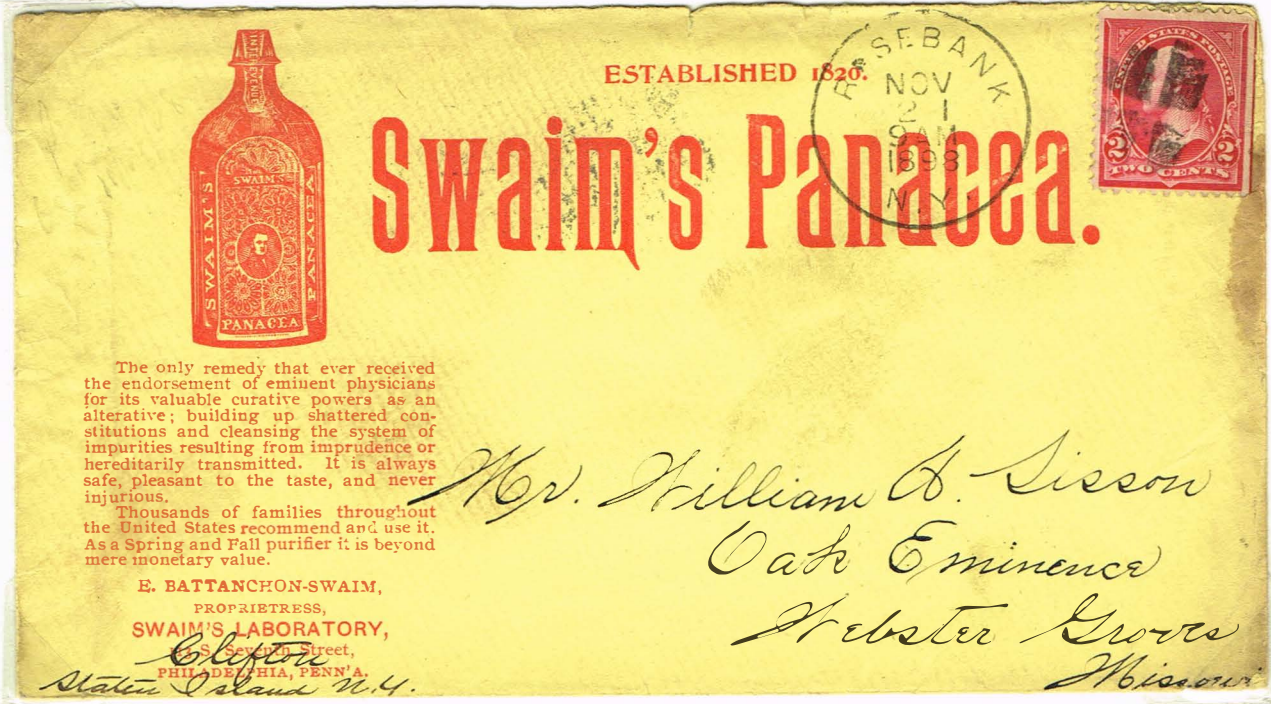 ESTABLISHED 1820.
Swaim's Panacea.
ROSEBANK
NOV
21
9AM
1898
N.Y.
UNITED STATES POSTAGE
2 2
TWO CENTS
SWAIM'S
SWAIM'S
PANACEA
PANACEA
The only remedy that ever received
the endorsement of eminent physicians
for its valuable curative powers as an
alterative; building up shattered con-
stitutions and cleansing the system of
impurities resulting from imprudence or
hereditarily transmitted. It is always
safe, pleasant to the taste, and never
injurious.
Thousands of families throughout
the United States recommend and use it.
As a Spring and Fall purifier it is beyond
mere monetary value.
E. BATTANCHON-SWAIM,
PROPRIETRESS,
SWAIM'S LABORATORY,
S. Seventh Street,
PHILADELPHIA, PENN'A.
Clifton
Staten Island N.Y.
Mr. William H. Sisson
Oak Eminence
Webster Groves
Missouri